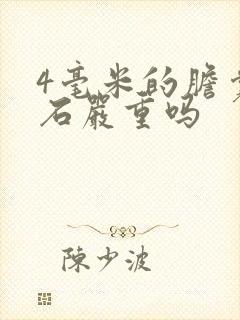 4毫米的膽
石嚴重吗
陳少波